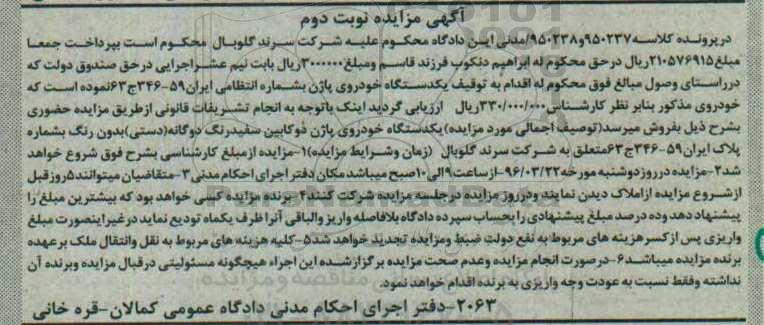 آگهی مزایده نوبت دوم
درپرونده کلاسه ۹۵۰۲۳۷و۹۵۰۲۳۸/مدنی این دادگاه محکوم علیه شرکت سرند گلوبال محکوم است بپرداخت جمعا
مبلغ۲۱۰۵۷۶۹۱۵ریال درحق محکوم له ابراهیم دنکوب فرزند قاسم ومبلغ۳۰۰۰۰۰۰ریال بابت نیم عشراجرایی درحق صندوق دولت که
درراستای وصول مبالغ فوق محکوم له اقدام به توقیف یکدستگاه خودروی پاژن بشماره انتظامی ایران۵۹-۳۴۶ج۶۳نموده است که
خودروی مذکور بنابر نظر کارشناس۳۳۰/۰۰۰/۰۰۰ریال ارزیابی گردید اینک باتوجه به انجام تشریفات قانونی ازطریق مزایده حضوری
بشرح ذیل بفروش میرسد(توصیف اجمالی مورد مزایده)یکدستگاه خودروی پاژن دوکابین سفیدرنگ دوگانه(دستی)بدون رنگ بشماره
پلاک ایران۵۹-۳۴۶ج۶۳متعلق به شرکت سرند گلوبال (زمان وشرایط مزایده)۱-مزایده ازمبلغ کارشناسی بشرح فوق شروع خواهد
شد۲-مزایده درروزدوشنبه مورخه۹۶/۰۳/۲۲-ازساعت۹الی۱۰صبح میباشدمکان دفتر اجرای احکام مدنی۳-متقاضیان میتوانند۵روزقبل
ازشروع مزایده ازاملاک دیدن نمایند ودرروز مزایده درجلسه مزایده شرکت کنند۴-برنده مزایده کسی خواهد بود که بیشترین مبلغ را
پیشنهاد دهد وده درصد مبلغ پیشنهادی رابحساب سپرده دادگاه بلافاصله واریز والباقی آنراظرف یکماه تودیع نماید درغیراینصورت مبلغ
واریزی پس ازکسرهزینه های مربوط به نفع دولت ضبط ومزایده تجدید خواهد شد۵-کلیه هزینه های مربوط به نقل وانتقال ملک برعهده
برنده مزایده میباشد۶-درصورت انجام مزایده وعدم صحت مزایده برگزارشده این اجراء هیچگونه مسئولیتی درقبال مزایده وبرنده آن
نداشته وفقط نسبت به عودت وجه واریزی به برنده اقدام خواهد نمود.
۲۰۶۳-دفتر اجرای احکام مدنی دادگاه عمومی کمالان-قره خانی